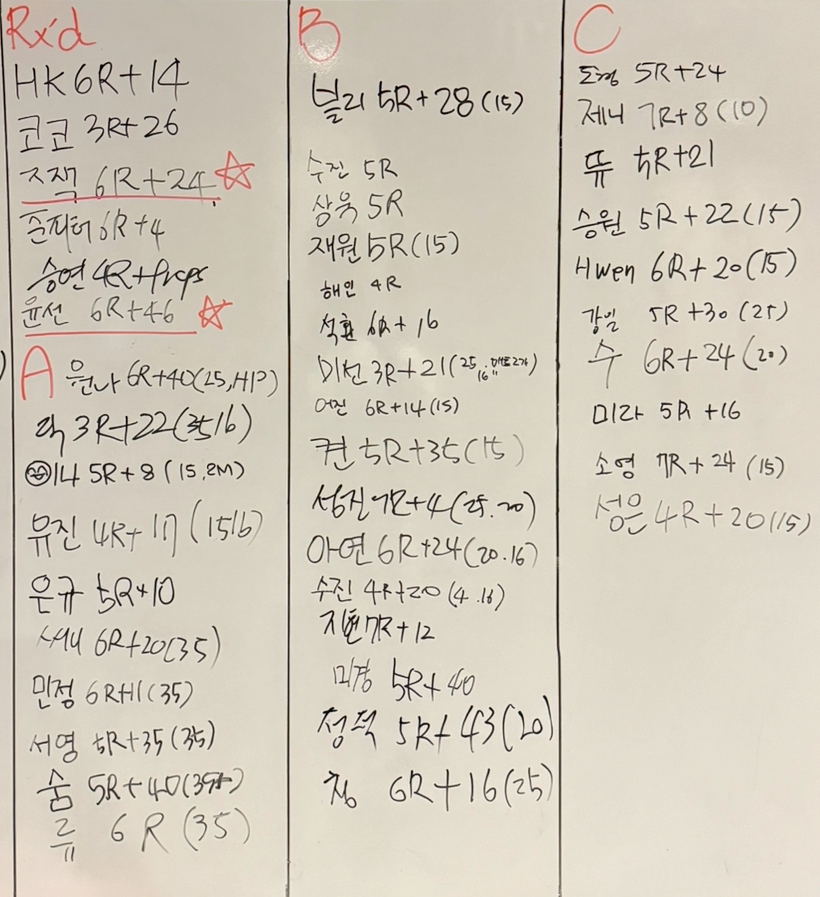 Rx'd
HK 6R+14
코코 3R+26
6R+24
준피터 6R+4
승연 4R+Preps
윤선 6R+46
A
원나 6R+40(25,HP)
락 3R+22(3516)
14 5R+8 (15, 2M)
유진 4R+17 (1516)
은규 5R+10
세니 6R+20(35)
민정 6R+1(35)
서영 5R+35(35)
숨 5R+40
류 6R(35)
B
블리 5R+28(15)
수진 5R
상욱 5R
재원 5R(15)
해인 4R
석환 6R+16
미천 3R+21
어진 6R+14(15)
퀸 5R+35(15)
성진 7R+4(25.20)
아연 6R+24(20.16)
수진 4R+20(4.16)
지현 7R+12
미경 5R+40
5R+43(20)
청 6R+16(25)
C
도형 5R+24
제니 7R+8(10)
뜌 5R+21
승원 5R+22(15)
Hwen 6R+20(15)
강일 5R+30(25)
수 6R+24(20)
미라 5R+16
소영 7R+24(15)
성은 4R+20(15)